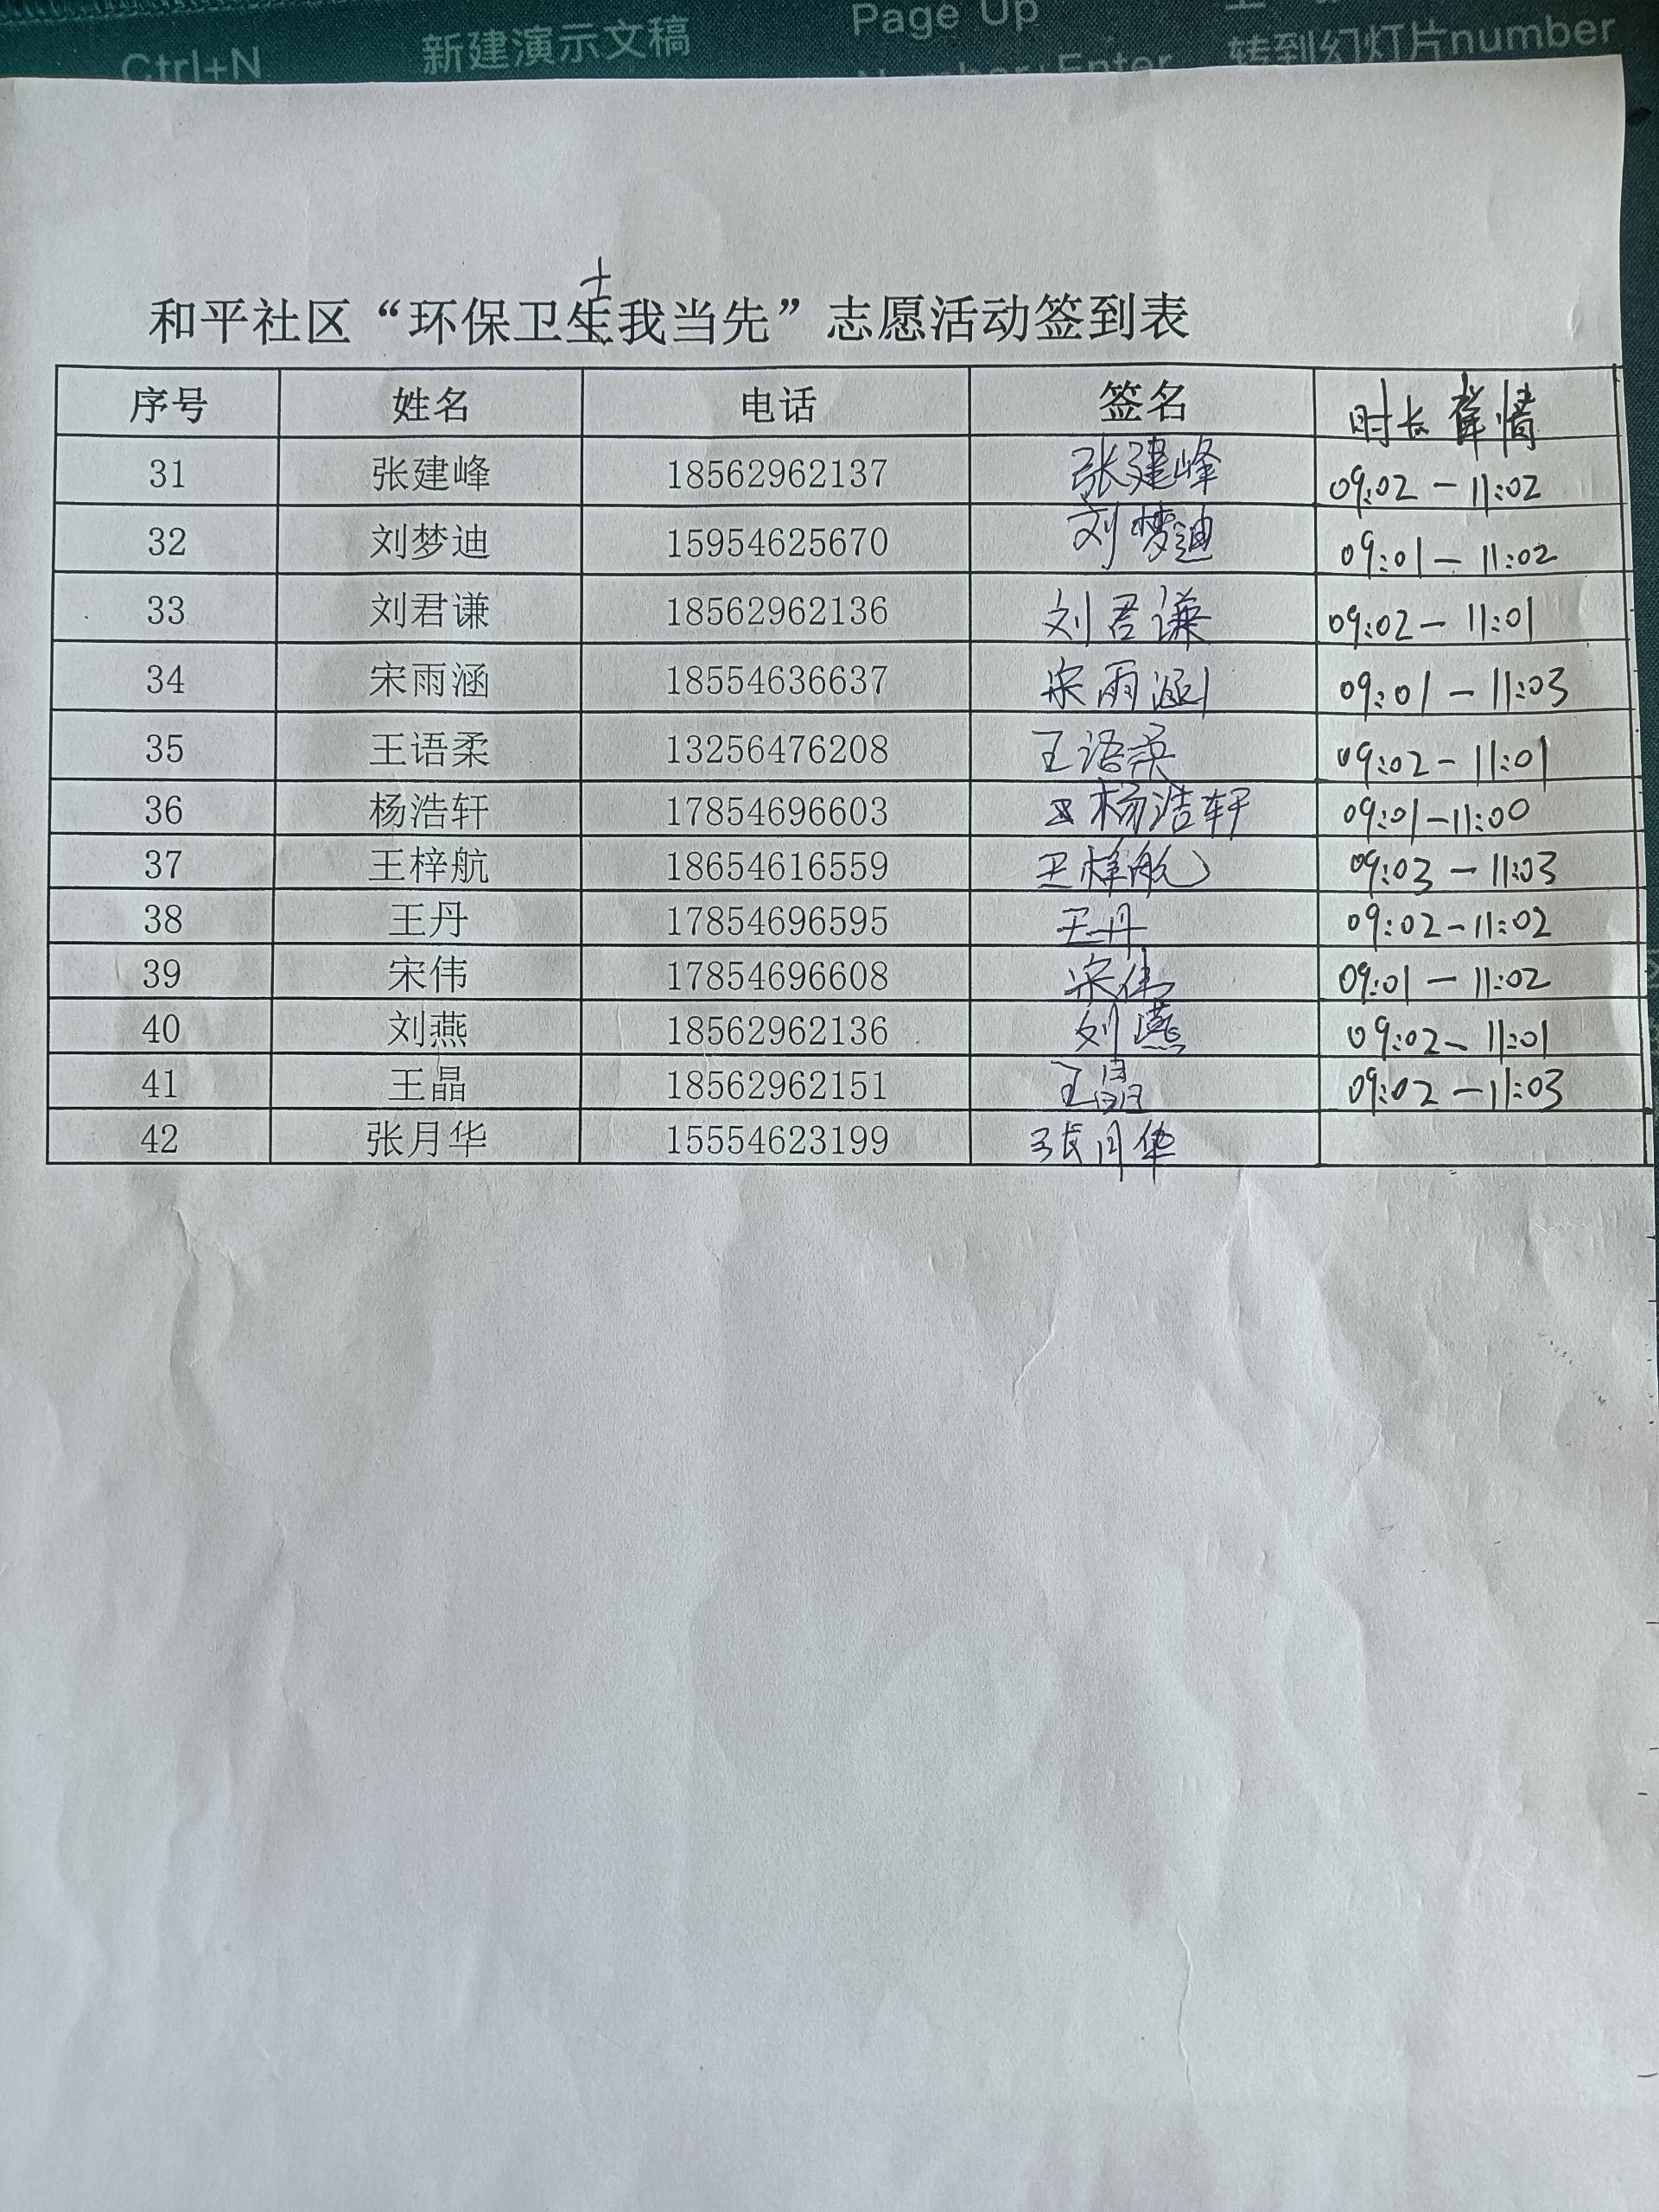 Ctrl+N 新建演示文稿 Page Up
Number+Enter 转到幻灯片number
和平社区“环保卫士我当先”志愿活动签到表
序号 姓名 电话 签名 时长 详情
31 张建峰 18562962137 张建峰 09:02-11:02
32 刘梦迪 15954625670 刘梦迪 09:01-11:02
33 刘君谦 18562962136 刘君谦 09:02-11:01
34 宋雨涵 18554636637 宋雨涵 09:01-11:03
35 王语柔 13256476208 王语柔 09:02-11:01
36 杨浩轩 17854696603 杨浩轩 09:01-11:00
37 王梓航 18654616559 王梓航 09:03-11:03
38 王丹 17854696595 王丹 09:02-11:02
39 宋伟 17854696608 宋伟 09:01-11:02
40 刘燕 18562962136 刘燕 09:02-11:01
41 王晶 18562962151 王晶 09:02-11:03
42 张月华 15554623199 张月华